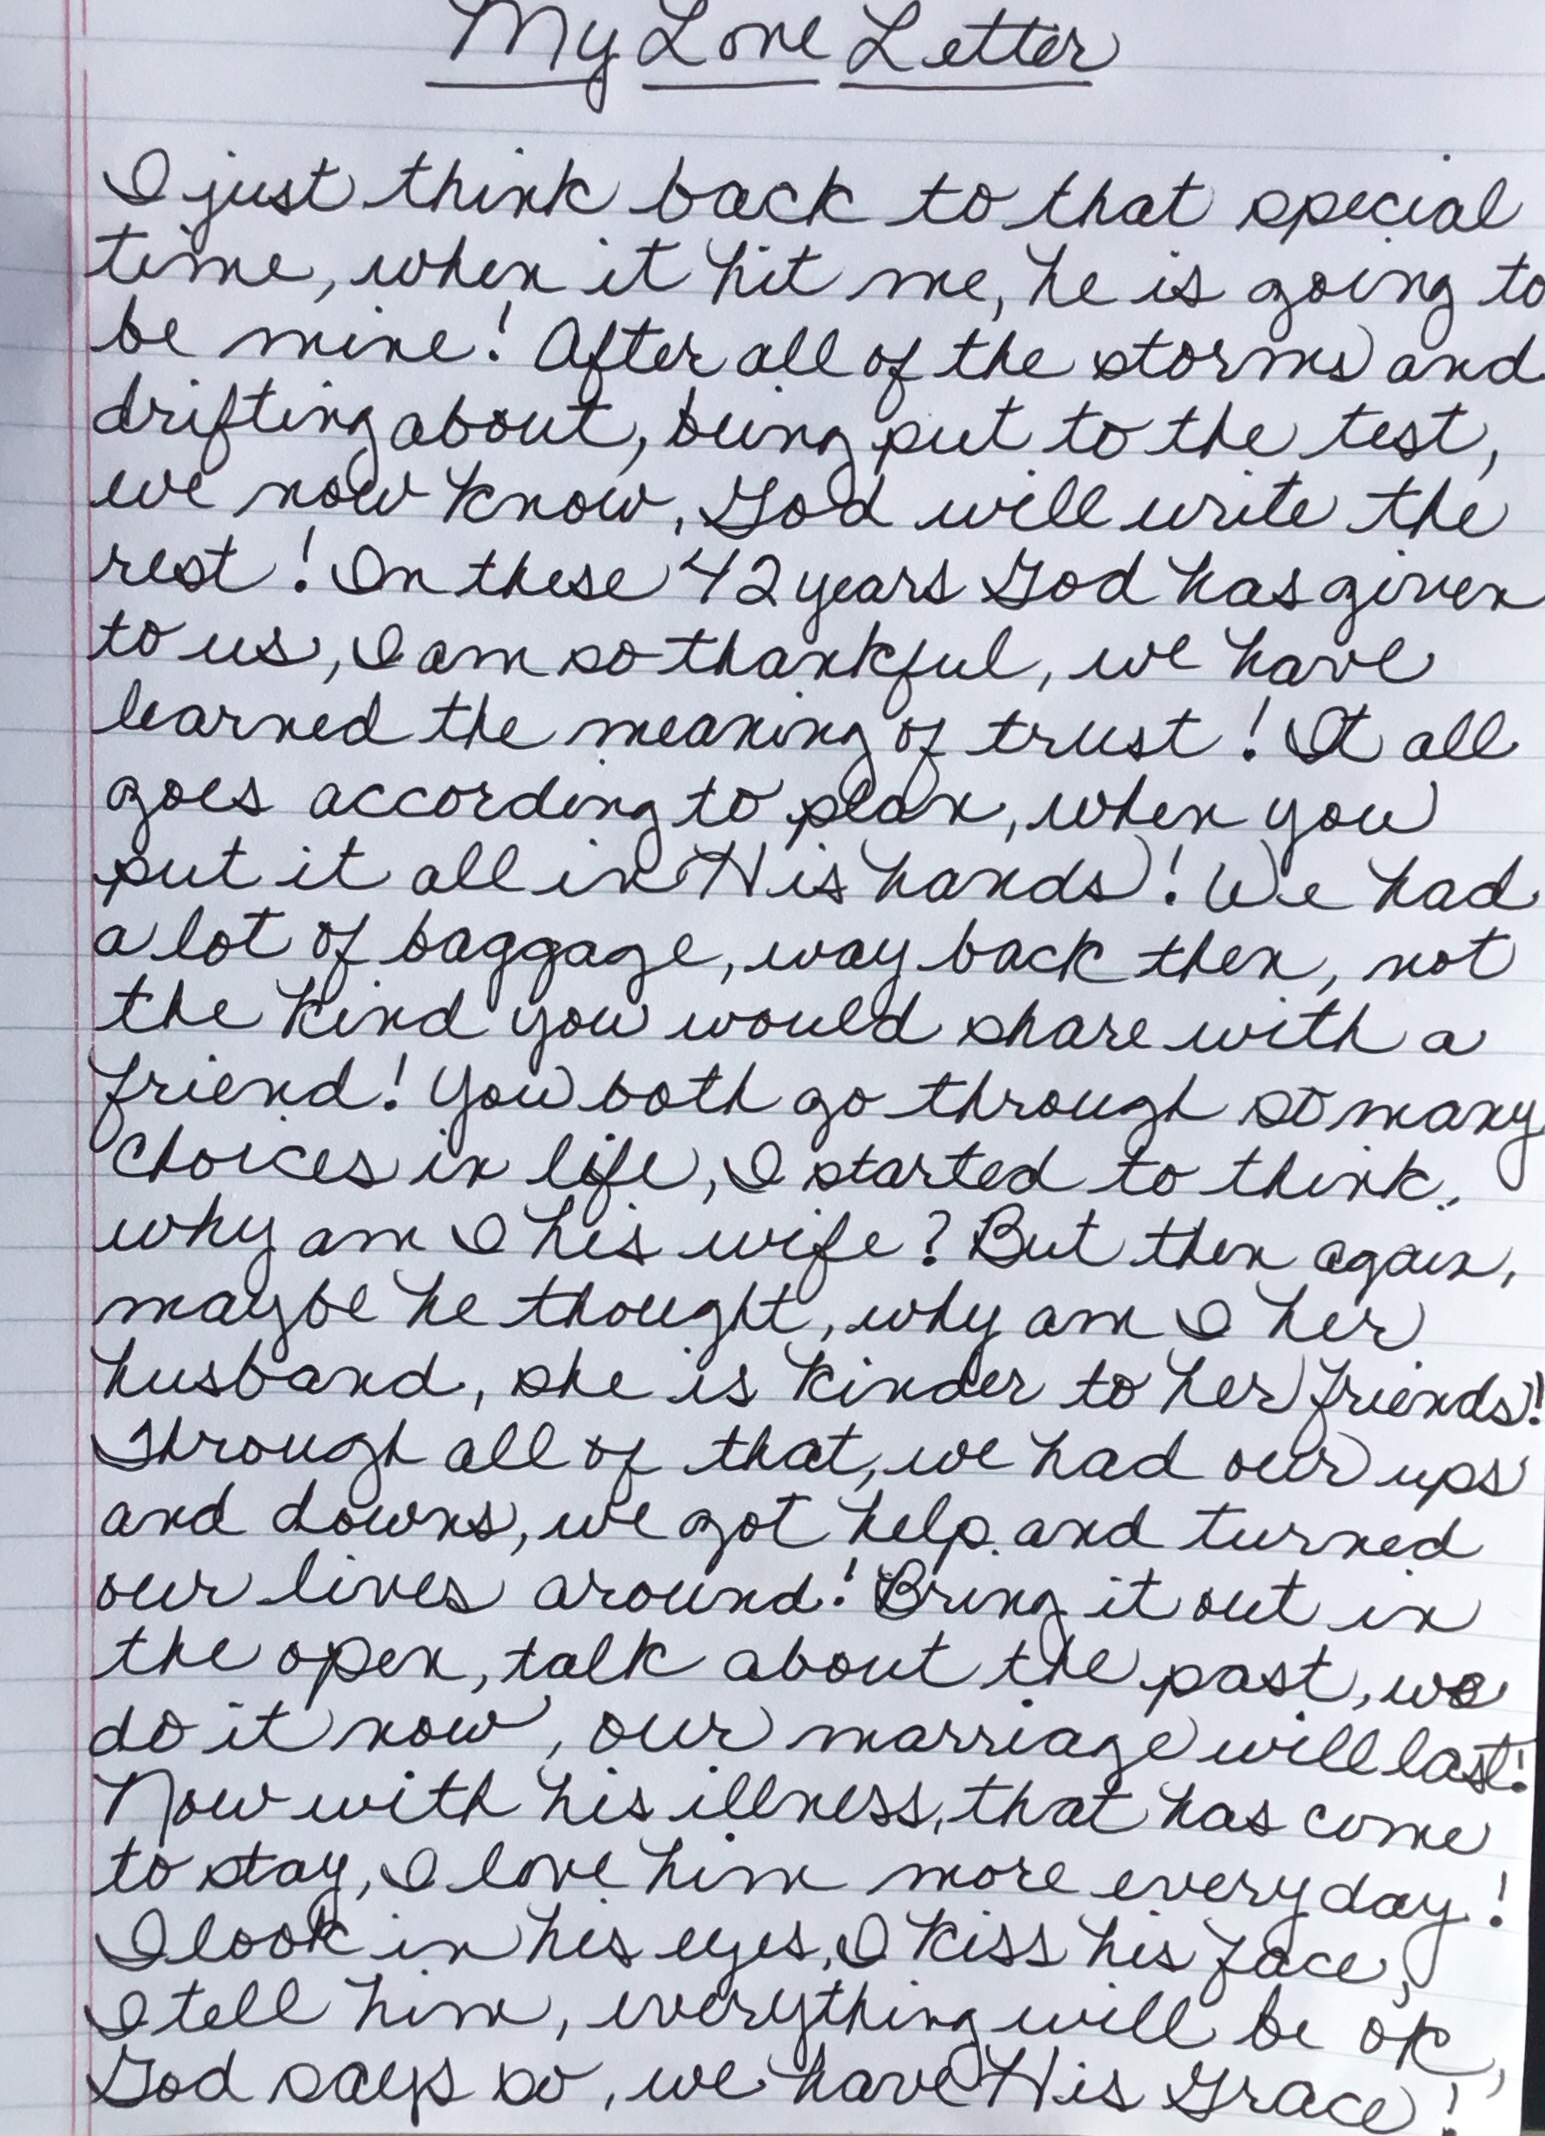 My Love Letter
I just think back to that special
time, when it hit me, he is going to
be mine! After all of the storms and
drifting about, being put to the test,
we now know, God will write the
rest! In these 42 years God has given
to us, I am so thankful, we have
learned the meaning of trust! It all
goes according to plan, when you
put it all in His hands! We had
a lot of baggage, way back then, not
the kind you would share with a
friend! You both go through so many
choices in life, I started to think,
why am I his wife? But then again,
maybe he thought, why am I her
husband, she is kinder to her friends!
Through all of that, we had our ups
and downs, we got help and turned
our lives around! Bring it out in
the open, talk about the past, we
do it now, our marriage will last!
Now with his illness, that has come
to stay, I love him more everyday!
I look in his eyes, I kiss his face,
I tell him, everything will be ok,
God says so, we have His Grace!